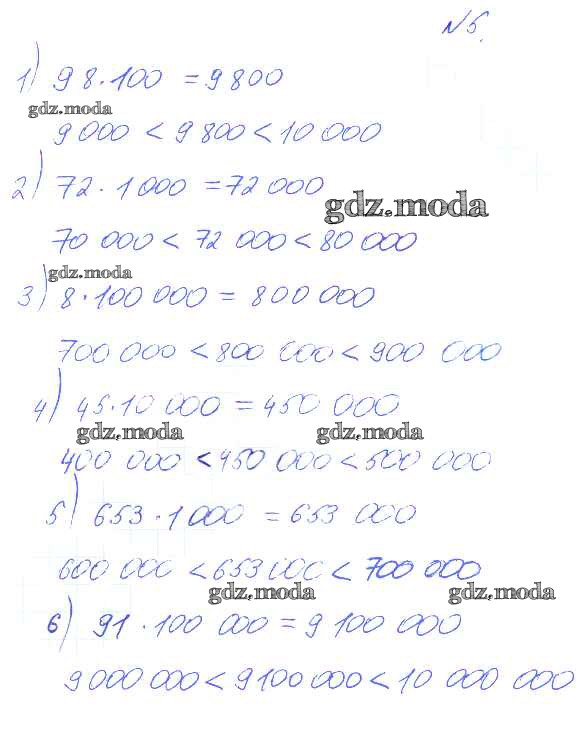 №5.
1) 98·100 = 9800
gdz.moda
9 000 < 9 800 < 10 000
2) 72·1 000 = 72 000
gdz.moda
70 000 < 72 000 < 80 000
gdz.moda
3) 8·100 000 = 800 000
700 000 < 800 000 < 900 000
4) 45·10 000 = 450 000
gdz.moda gdz.moda
400 000 < 450 000 < 500 000
5) 653·1 000 = 653 000
600 000 < 653 000 < 700 000
gdz.moda gdz.moda
6) 91·100 000 = 9 100 000
9 000 000 < 9 100 000 < 10 000 000